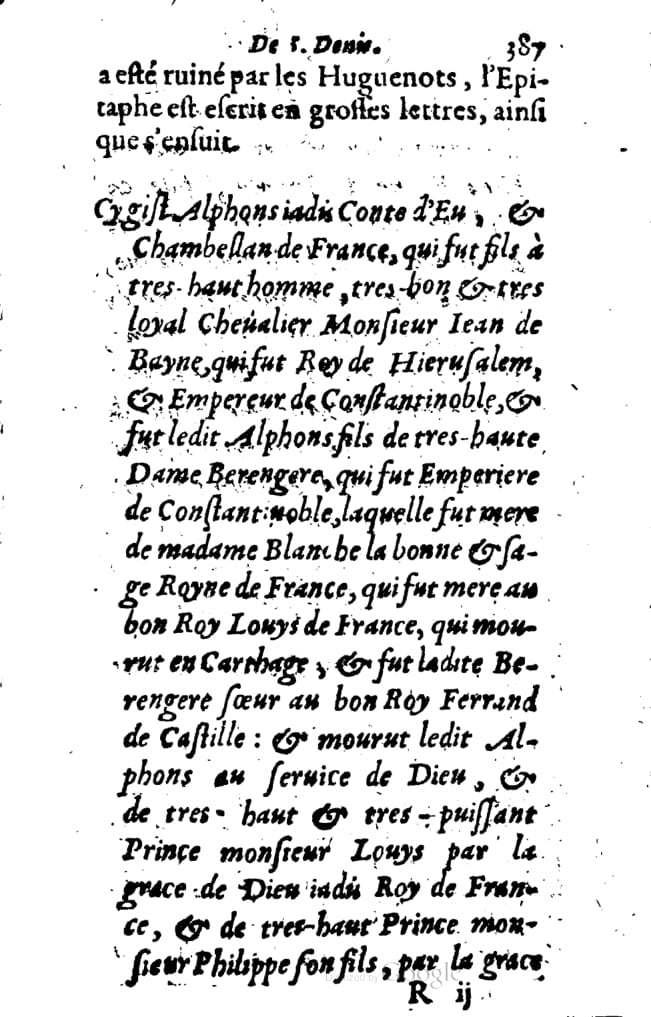 De S. Denis. 387
a esté ruiné par les Huguenots, l'Epi-
taphe est escrit en grosses lettres, ainsi
que s'ensuit.
Cy gist Alphons iadis Conte d'Eu, &
Chambellan de France, qui fut fils à
tres-haut homme, tres-bon & tres
loyal Cheualier Monsieur Iean de
Bayne, qui fut Roy de Hierusalem,
& Empereur de Constantinoble, &
fut ledit Alphons fils de tres-haute
Dame Berengere, qui fut Emperiere
de Constantinoble, laquelle fut mere
de madame Blanche la bonne & sa-
ge Royne de France, qui fut mere au
bon Roy Louys de France, qui mou-
rut en Carthage, & fut ladite Be-
rengere sœur au bon Roy Ferrand
de Castille : & mourut ledit Al-
phons au seruice de Dieu, &
de tres-haut & tres-puissant
Prince monsieur Louys par la
grace de Dieu iadis Roy de Fran-
ce, & de tres-haut Prince mon-
sieur Philippe son fils, par la grace
R ij
Digitized by Google